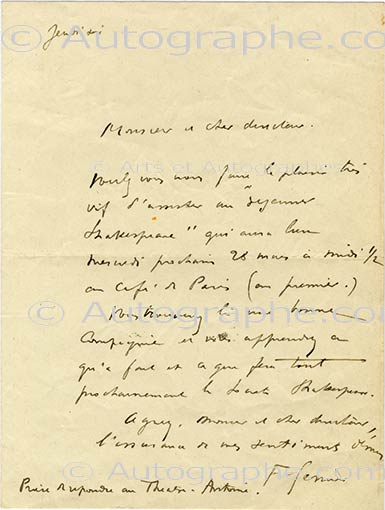 Jeudi
Monsieur et cher directeur.
Voulez vous nous faire le plaisir très
vif d'assister au "déjeuner
Shakespeare" qui aura lieu
mercredi prochain 28 mars à midi 1/2
au Café de Paris (au premier.)
Vous trouverez là une bonne
Compagnie et vous apprendrez ce
qu'a fait et ce que fera tout
prochainement la Société Shakespeare.
Agréez, monsieur et cher directeur,
l'assurance de mes sentiments dévoués
F Gémier
Prière de répondre au Théâtre-Antoine.
© Autographe.com
© Arts et Autographes
© Autographe.com
© Autographe.com